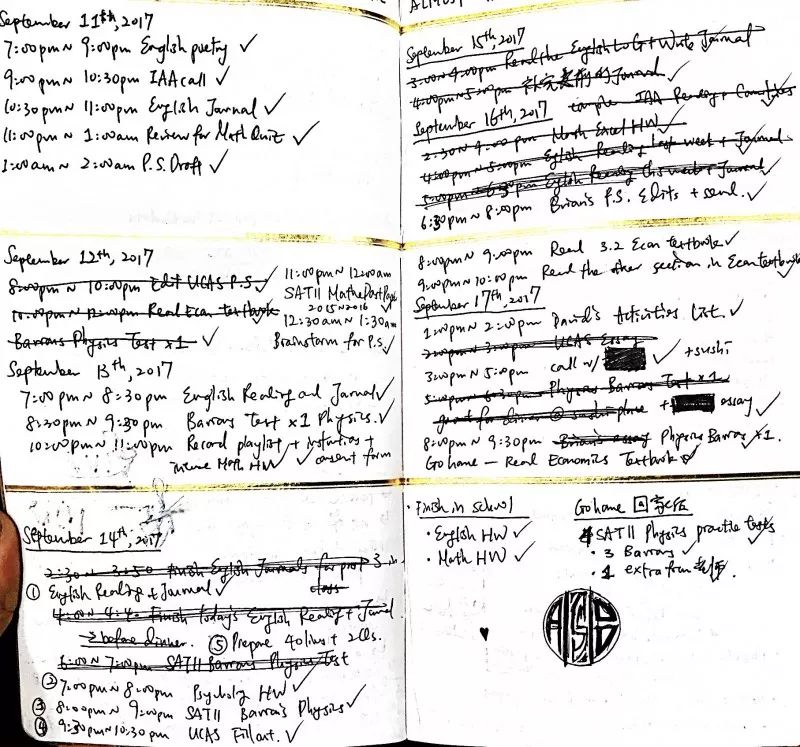 September 11th, 2017
7:00pm~ 9:00pm English poetry ✓
9:00pm ~ 10:30pm IAA call ✓
10:30pm ~ 11:00pm English Journal ✓
11:00pm ~ 1:00am Review for Math Quiz ✓
1:00am ~ 2:00am P.S. Draft ✓
September 12th, 2017
8:00pm ~ 10:00pm Edit UCAS P.S. ✓
10:00pm ~ 12:00am Read Econ textbook ✓
Barrons Physics Test x1 ✓
11:00pm ~ 12:00am
SATII Math Past Paper
2015~2016
12:30am ~ 1:30am
Brainstorm for P.S. ✓
September 13th, 2017
7:00pm ~ 8:30pm English Reading and Journal ✓
8:30pm ~ 9:30pm Barrons Test x1 Physics. ✓
10:00pm ~ 11:00pm Record playlist +
Math HW ✓ consent form
September 14th, 2017
2:30~ 3:50 Finish English Journals for prof
class
① English Reading + Journal ✓
Finish today's English Reading + Journal
before dinner. ⑤ Prepare
6:00~ 7:00pm SATII Barrons Physics Test
② 7:00pm ~ 8:00pm Psychology HW ✓
③ 8:00pm ~ 9:00pm SATII Barrons Physics ✓
④ 9:30pm~10:30pm UCAS Fillout. ✓
September 15th, 2017
3:00~4:00pm Read the English + Write Journal
4:00pm~5:00pm Journal ✓
IAA Reading +
September 16th, 2017
Math Excel HW ✓
4:00pm~ 5:00pm English Reading last week + Journal
English Reading this week + Journal
6:30pm ~ 8:00pm Brian's P.S. Edits + send. ✓
8:00pm ~ 9:00pm Read 3.2 Econ textbook ✓
9:00pm~10:00pm Read the other section in Econ textbook
September 17th, 2017
1:00pm ~ 2:00pm David's Activities List. ✓
2:00pm ~ 3:00pm UCAS Essay
3:00pm ~ 5:00pm call w/ ✓ + sushi
Physics Barrons Test x 1
go out for dinner @ sushi place + essay ✓
8:00pm ~ 9:30pm Brian's essay Physics Barrons x1.
Go home — Read Economics Textbook ✓
· Finish in school
· English HW ✓
· Math HW ✓
Go home 回家后
SATII Physics practice tests
· 3 Barrons ✓
· 1 extra from